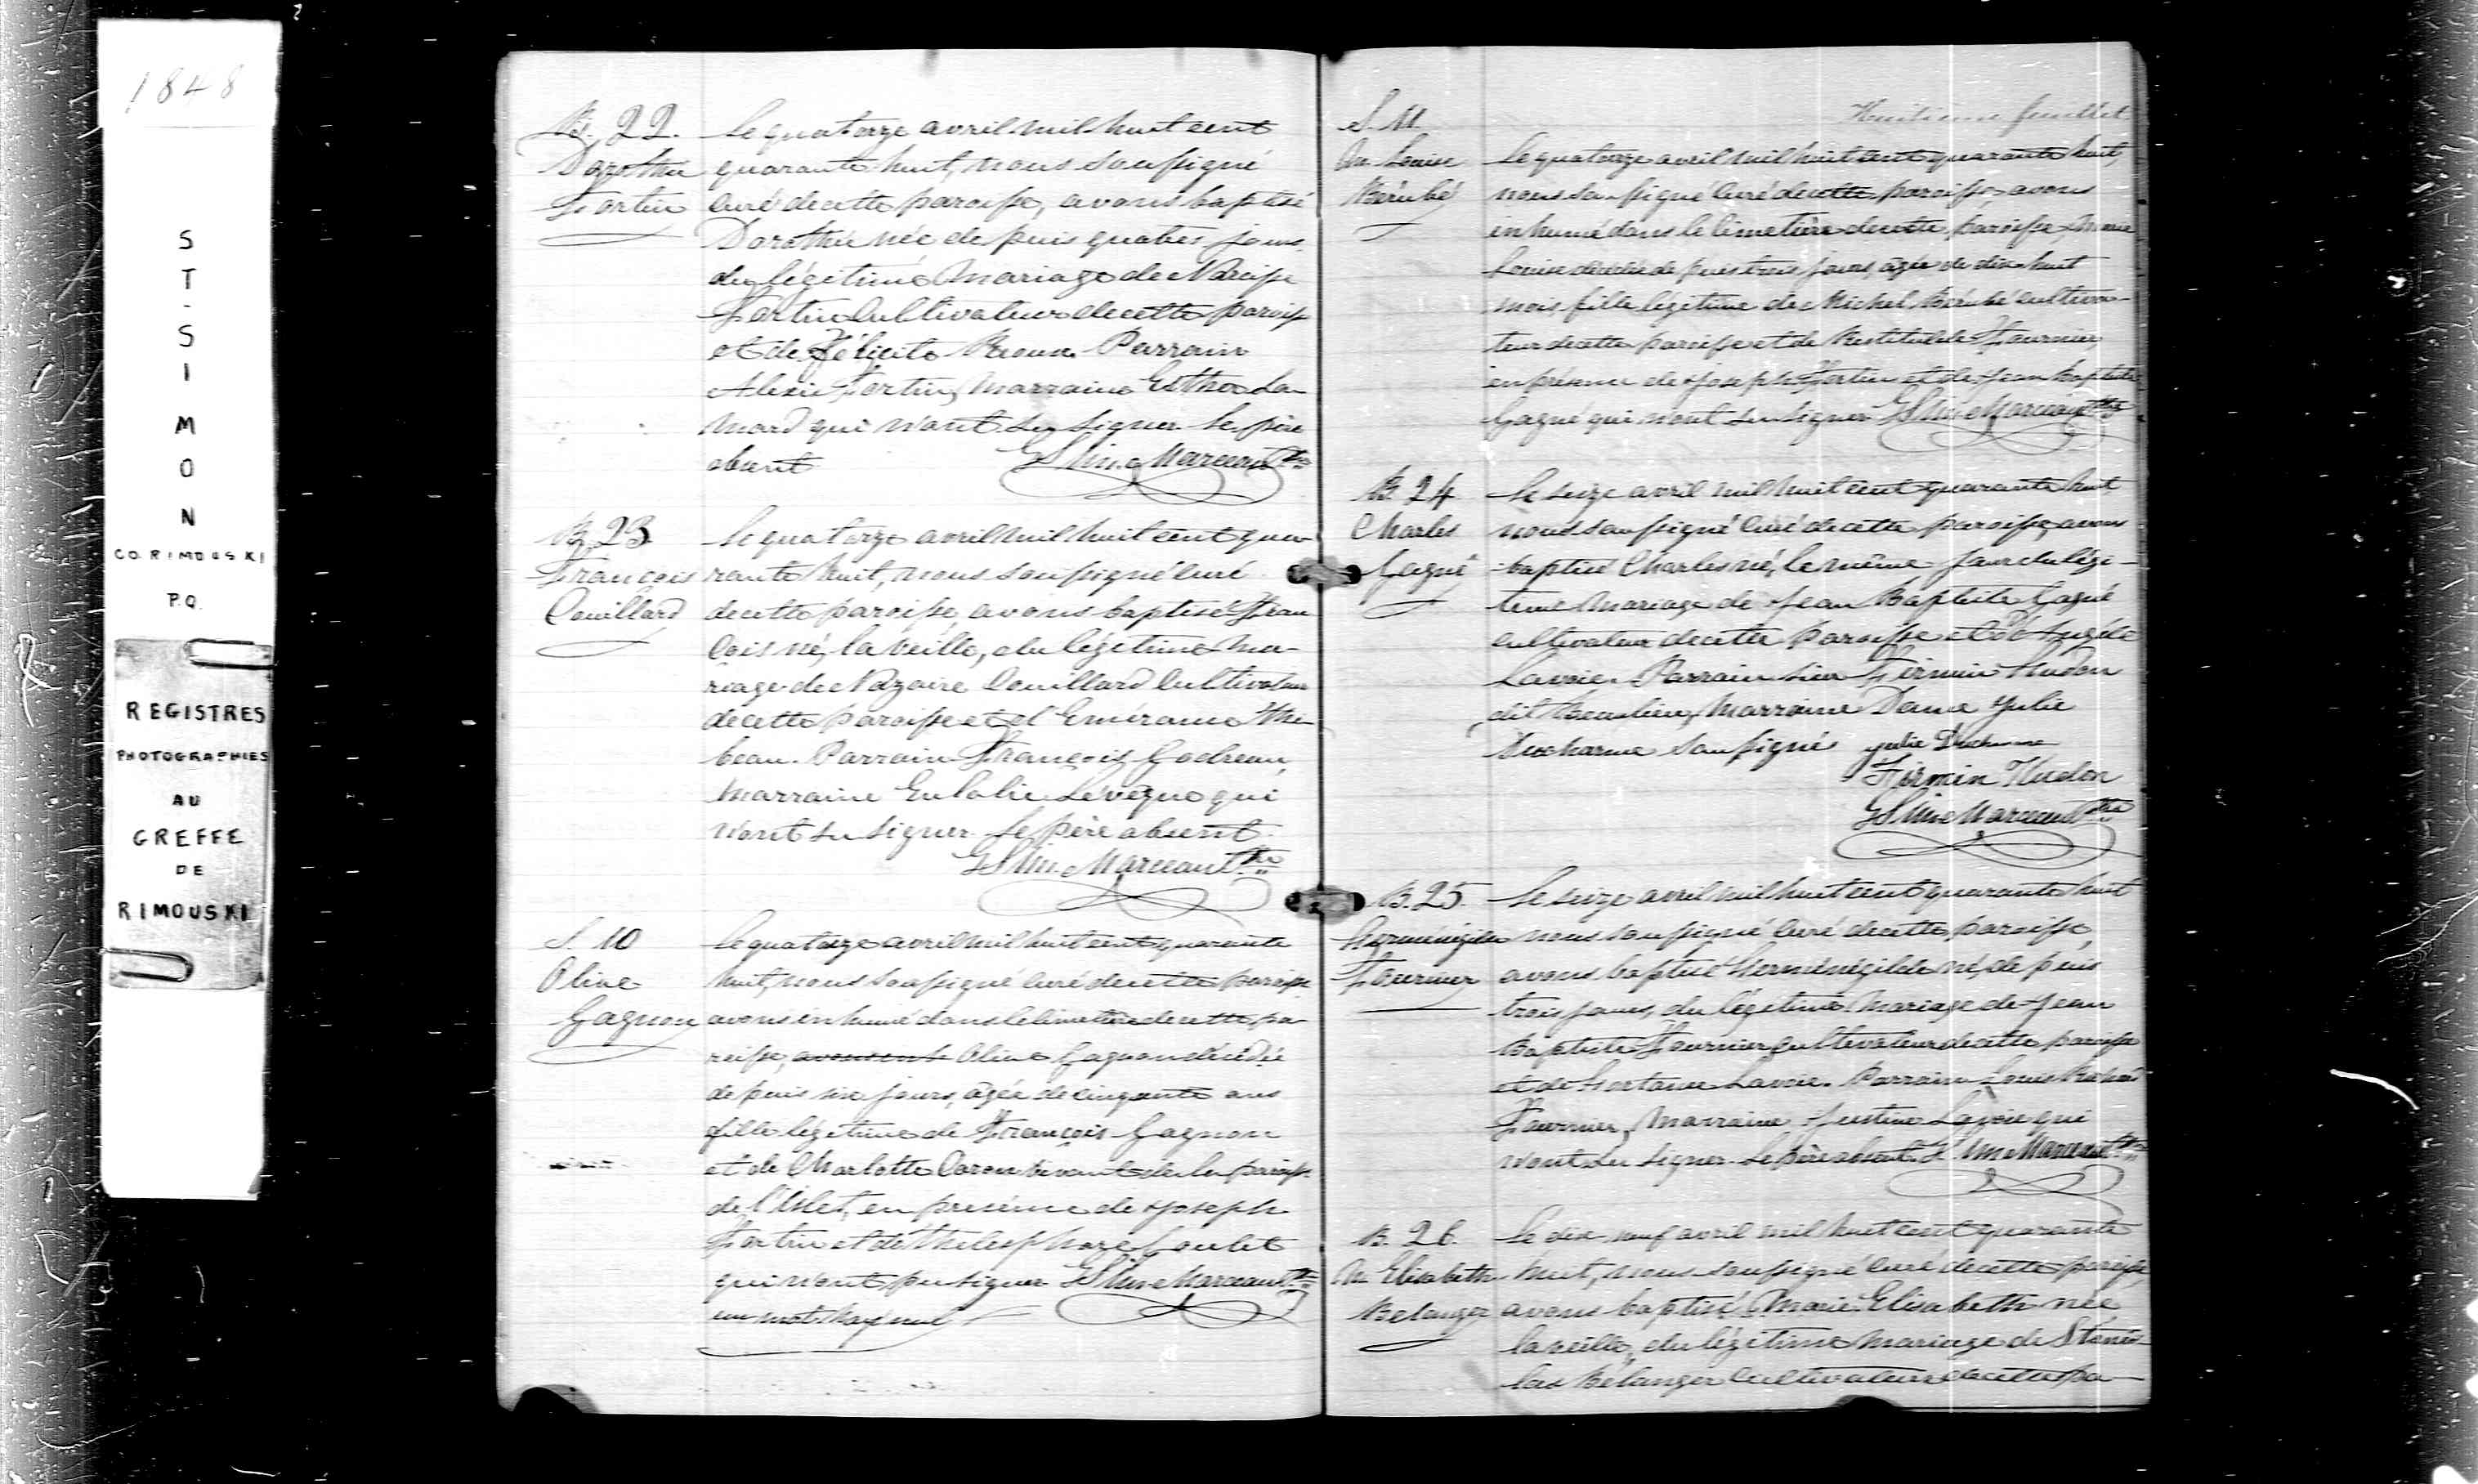 1848
ST-SIMON
CO. RIMOUSKI
P.Q.
REGISTRES
PHOTOGRAPHIES
AU
GREFFE
DE
RIMOUSKI
B. 22.
Dorothée
Fortin
Le quatorze avril mil huit cent
quarante huit, nous soussigné
curé de cette paroisse, avons baptisé
Dorothée née depuis quatre jours
du légitime mariage de Narcisse
Fortin cultivateur de cette paroisse
et de Félicité Rioux. Parrain
Alexis Fortin, Marraine Esther La-
mard qui n'ont su signer. Le père
absent. Marceau Ptre
B. 23
François
Couillard
Le quatorze avril mil huit cent qua-
rante huit, nous soussigné curé
de cette paroisse, avons baptisé Fran
çois né, la veille, du légitime ma-
riage de Nazaire Couillard cultivateur
de cette paroisse et d'Emérance Thi-
beau. Parrain François Godreau,
Marraine Eulalie Lévêque qui
n'ont su signer. Le père absent.
Marceau Ptre
S. 10
Olive
Gagnon
Le quatorze avril mil huit cent quarante
huit, nous soussigné curé de cette paroisse
avons inhumé dans le cimetière de cette pa-
roisse, Olive Gagnon décédée
depuis six jours, âgée de cinquante ans
fille légitime de François Gagnon
et de Charlotte Caron vivants de la paroisse
de l'Islet, en présence de Joseph
Fortin et de Thelesphore Goulet
qui n'ont pu signer Marceau Ptre
un mot rayé nul
Huitième feuillet
S. 11
M. Louise
Bérubé
Le quatorze avril mil huit cent quarante huit,
nous soussigné curé de cette paroisse avons
inhumé dans le cimetière de cette paroisse Marie
Louise décédée depuis trois jours, âgée de dix huit
mois fille légitime de Michel Bérubé cultiva-
teur de cette paroisse et de Restitude Fournier,
en présence de Joseph Fortin et de Jean Baptiste
Gagné qui n'ont su signer Marceau Ptre
B. 24
Charles
Gagné
Le seize avril mil huit cent quarante huit
nous soussigné curé de cette paroisse, avons
baptisé Charles né, le même jour du légi-
time mariage de Jean Baptiste Gagné
cultivateur de cette paroisse et d'Angèle
Lavoie. Parrain sieur Firmin Hudon
dit Beaulieu, Marraine Dame Julie
Ducharme soussignés Julie Ducharme
Firmin Hudon
Marceau Ptre
B. 25.
Herménégilde
Fournier
Le seize avril mil huit cent quarante huit
nous soussigné curé de cette paroisse,
avons baptisé Herménégilde né, depuis
trois jours, du légitime mariage de Jean
Baptiste Fournier cultivateur de cette paroisse
et de Hortance Lavoie. Parrain Louis
Fournier, Marraine Justine Lavoie qui
n'ont su signer. Le père absent. Marceau Ptre
B. 26.
M. Elisabeth
Belanger
Le dix-neuf avril mil huit cent quarante
huit, nous soussigné curé de cette paroisse
avons baptisé Marie Elisabeth née
la veille, du légitime mariage de Stanis-
las Bélanger cultivateur de cette pa-